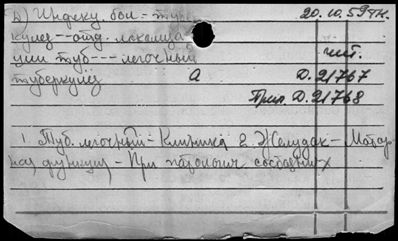 б) Индеку. бол. - тубер
кулез - - отд. локализа
ции туб - - - легочный
туберкулез
20.10.59
чит.
а Д. 21767
Прил. Д. 21768
1. Туб. легочный - Клиника 2. Желудок - Мотор
ная функция - При патологич. состояниях